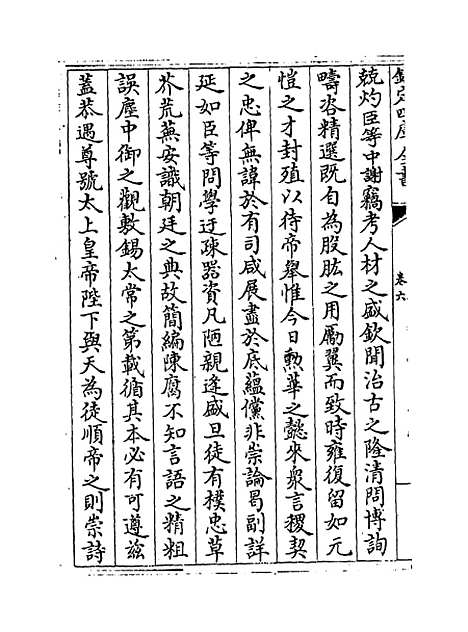 欽定四庫全書
卷六
兢灼臣等中謝竊考人材之盛欽聞治古之隆清問博詢
疇咨精選既自為股肱之用勵翼而致時雍復留如元
愷之才封殖以待帝舉惟今日勲華之懿來衆言稷契
之忠俾無諱於有司咸展盡於底蘊儻非崇論曷副詳
延如臣等問學迂疎器資凡陋親逢盛旦徒有樸忠草
芥荒蕪安識朝廷之典故簡編陳腐不知言語之精粗
誤塵中御之觀敷錫太常之第載循其本必有可遵兹
蓋恭遇尊號太上皇帝陛下與天為徒順帝之則崇詩